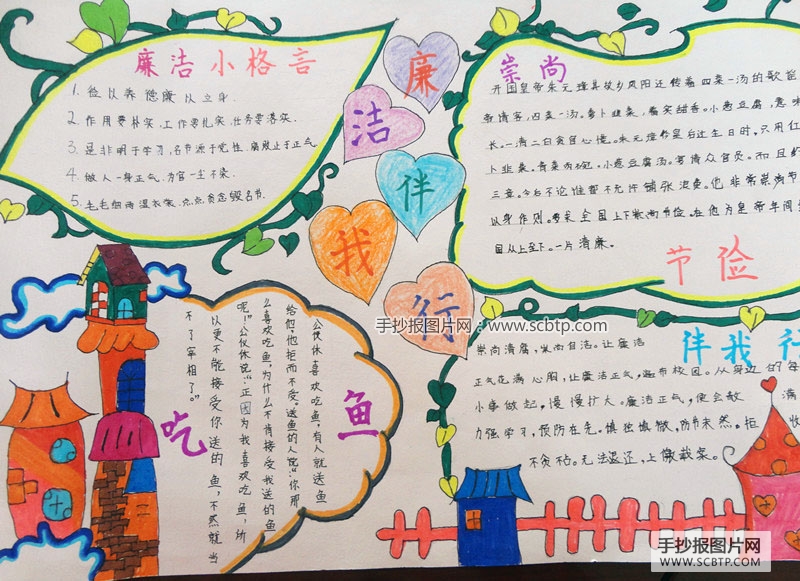 廉洁小格言
1. 俭以养德廉以立身.
2. 作用要朴实,工作要扎实,任务要落实.
3. 是非明于学习,名节源于党性,腐败止于正气.
4. 做人一身正气,为官一尘不染.
5. 毛毛细雨湿衣裳,点点贪念毁名节.
廉
洁
伴
我
行
崇尚
开国皇帝朱元璋其故乡凤阳还传着四菜一汤的歌谣
帝请客,四菜一汤。萝卜韭菜,着实甜香。小葱豆腐,意味
长。一清二白贪官心慌。朱元璋给皇后过生日时。只用红
卜韭菜。青菜两碗。小葱豆腐汤。宴请众官员。而且约
三章。今后不论谁要不允许铺张浪费。他非常崇尚节
以身作则。带来全国上下崇尚节俭。在他为皇帝年间
国从上至下。一片清廉。
节俭
公仪休喜欢吃鱼,有人就送鱼
给他,他拒而不受。送鱼的人说:“你那
么喜欢吃鱼,为什么不肯接受我送的鱼
呢!”公仪休说:“正因为我喜欢吃鱼,所
以更不能接受你送的鱼,不然就当
不了宰相了。”
吃
鱼
手抄报图片网:www.scbtp.com
伴我行
崇尚清廉,崇尚自洁。让廉洁
正气花满心胸,让廉洁正气,遍布校园。从身边的每
小事做起,慢慢扩大。廉洁正气,使会散满
力强学习,预防在先。慎独慎微,防节未然。拒收
不贪粘。无法退还,上缴裁案。
手抄报图片网
WWW.SCBTP.COM